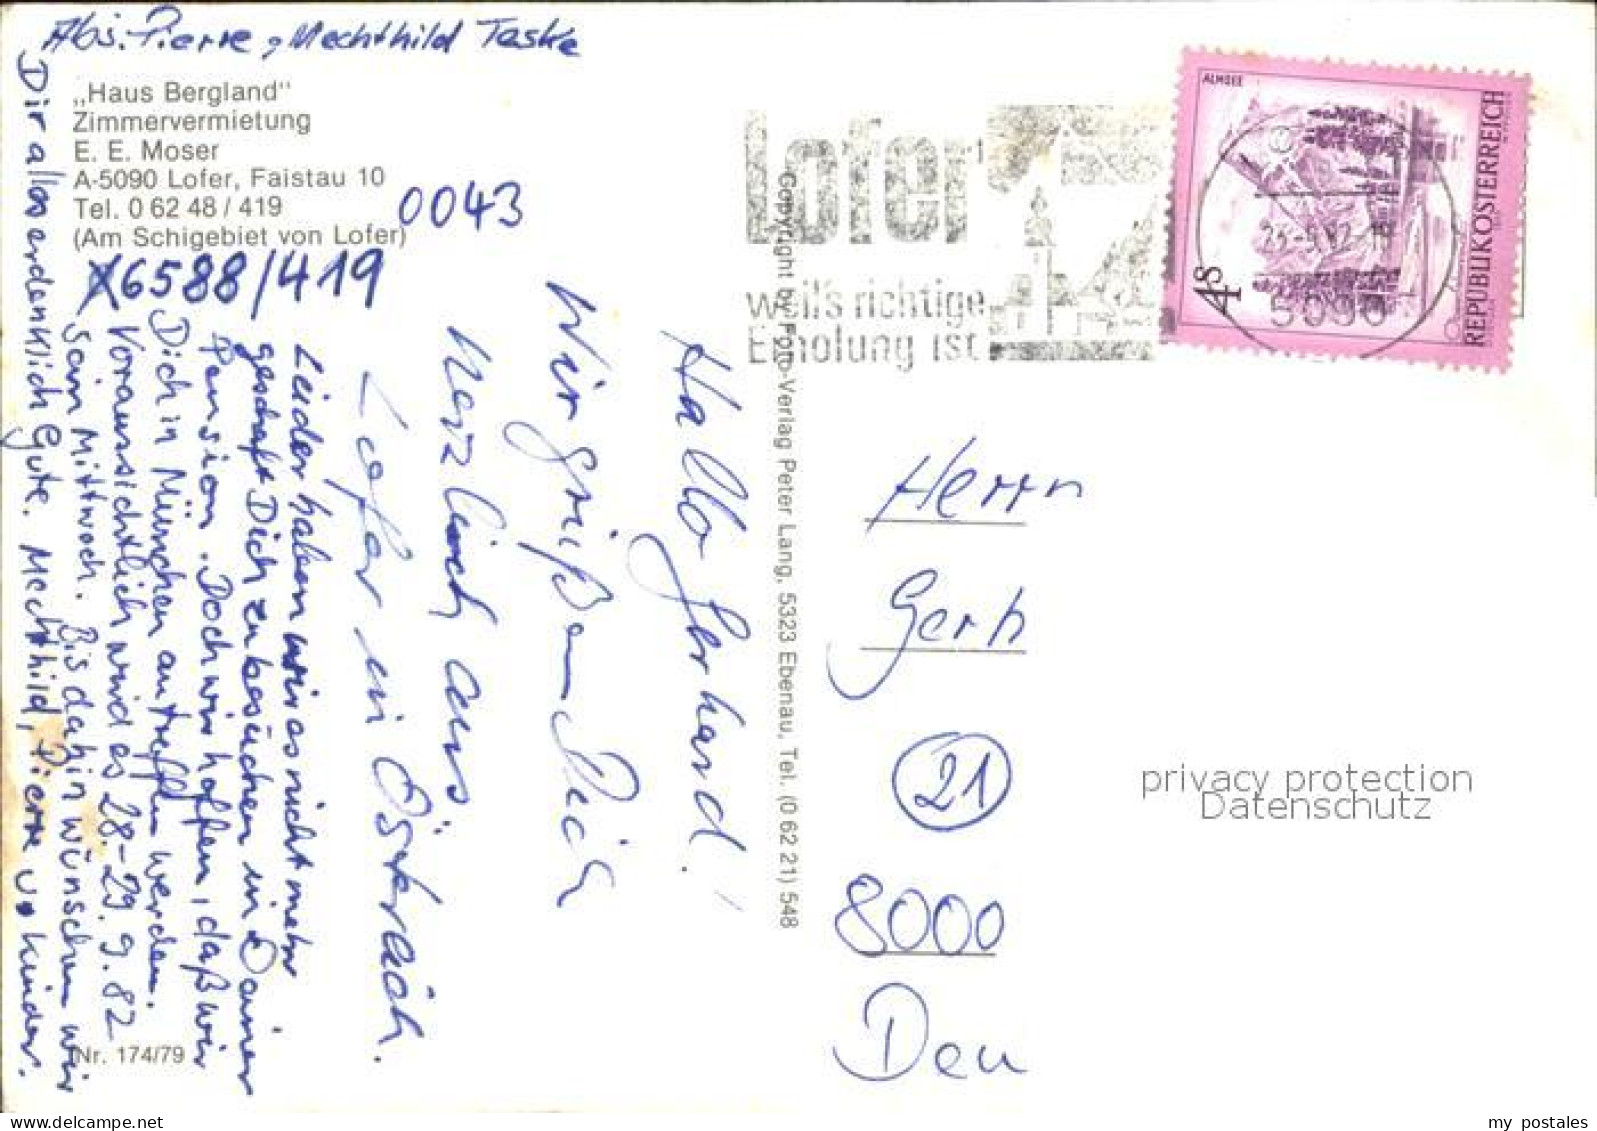 Abs: Pierre, Mechthild Taske
„Haus Bergland"
Zimmervermietung
E. E. Moser
A-5090 Lofer, Faistau 10
Tel. 0 62 48 / 419
(Am Schigebiet von Lofer)
0043
6588/419
Hallo Gerhard!
Wir grüßen Dich
herzlich aus
Lofer in Österreich.
Leider haben wir es nicht mehr
geschaft Dich zu besuchen in Deiner
Pension. Doch wir hoffen, daß wir
Dich in München antreffen werden.
Voraussichtlich wird es 28.-29.9.82
sein Mittwoch. Bis dahin wünschen wir
Dir alles erdenklich Gute. Mechthild, Pierre u. Kinder.
Nr. 174/79
Copyright by Foto-Verlag Peter Lang, 5323 Ebenau, Tel. (0 62 21) 548
lofer
weil's richtige
Erholung ist
ALMSEE
4S
REPUBLIK ÖSTERREICH
5090
Herrn
Gerh
21
8000
privacy protection
Datenschutz
my postales